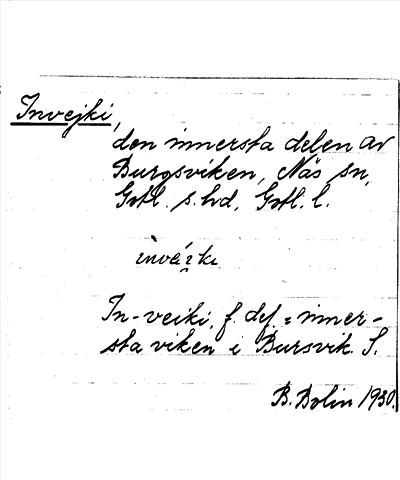 Invejki,
den innersta delen av
Burgsviken, Näs sn,
Gotl. s. hd, Gotl. l.
In-veiki, f. def. = inner-
sta viken i Bursvik. S.
B. Bolin 1930.